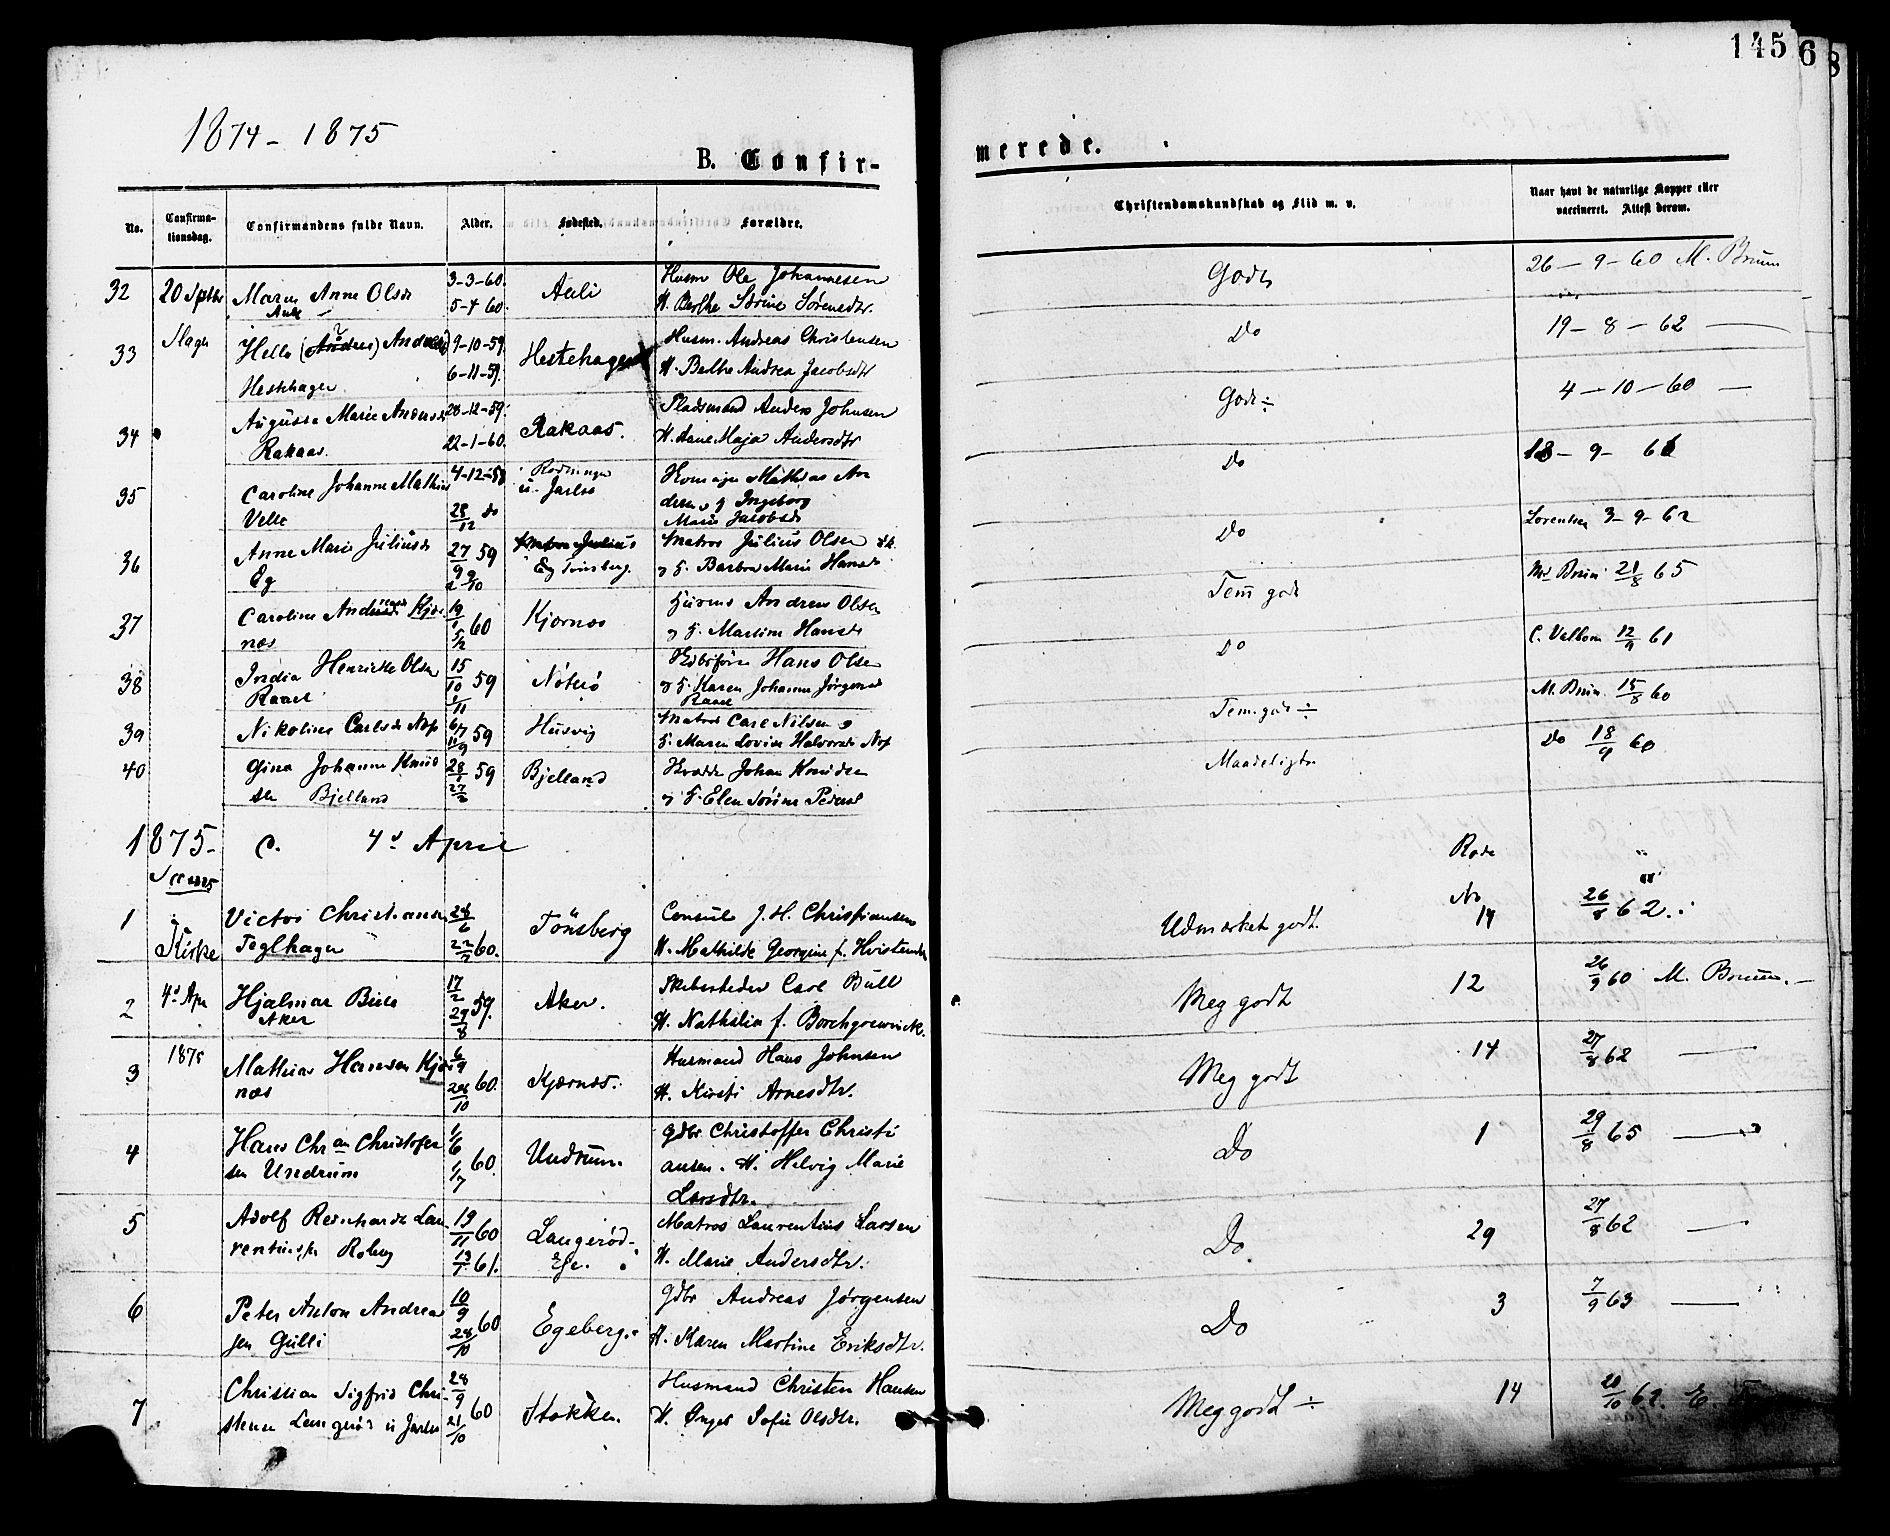 145 6 8
1874 - 1875
B. Confir-
merede.
No.
Confirma-
tionsdag.
Confirmandens fulde Navn.
Alder.
Fødested.
Forældre.
Christendomskundskab og Flid m. v.
Naar havt de naturlige Kopper eller
vaccineret. Attest derom.
32 20 Septbr Maren Anne Olsdr 3-3-60. Auli Husm Ole Johannesen Godt 26-9-60 M. Bruun
Aule 5-4 60. H. Berthe Sørine Sørensdtr.
33 Slagn Helle (Andrea) 9-10-59 Hestehagen Husm. Andreas Christensen Do 19-8-62
Hestehagen 6-11-59. H. Berthe Andrea Jacobsdtr
34 Augusta Marie Andersdr 28-12-59. Rakaas. Pladsmand Anders Johnsen Godt ÷ 4-10-60
Rakaas 22-1-60. H. Anne Maja Andersdtr
35 Caroline Johanne Mathias 4-12-58 Mathias An Do 18-9-61
Velle 28/12 do u. Jarlsb dersen og Ingeborg
Marie Jacobsdr
36 Anne Marie Juliusdr 27/9 59 Matros Julius Olsen Do Lorentzen 3-9-62
Eg 9/10 Eg Tønsberg. og H. Barbra Marie Hansdr
37 Caroline Kjær 19/1 60 Kjærnæs Andreas Olsen Tem godt M. Bruun 21/8 65
næs 5/2 og H. Martine Hansdr
38 India Henriette Olsen 15/10 59 Nøtterø Skibsfører Hans Olsen Do C. Vallom 12/9 61
Raael /11 og H. Karen Johanne Jørgensdr
Raael
39 Nikoline Carlsdr Næs 59 Husvig Matros Carl Nilsen og Tem. godt ÷ M. Bruun. 15/8 60
H. Maren Lovise Halvorsdr Næs
40 Gina Johanne Knud 28/ 59 Bjelland Johan Knudsen Maadeligt Do 18/9 60
sdr Bjelland 27/ og H. Elen Sørine Pedersd
1875- C. 4d April Rode "
Seems No "
1 Victor Christiansen 24/6 Tönsberg Consul J. H. Christiansen Udmærket godt. 14 26/8 62
Kirke Teglhagen 22/7 60. H. Mathilde Georgine f. Hvistendal
2 4d Apr Hjalmar Bull 17/2 59. Aker. Skibsreder Carl Bull Meg godt 12 26/9 60 M. Bruun.
Aker 29/8 H. Nathalia f. Borchgrevinck.
3 1875 Mathias Hansen Kjær 6/9 60. Kjærnæs. Husmand Hans Johnsen Meg godt 14 27/8 62
næs 28/10 H. Kirsti Arnesdtr.
4 Hans Chr an Christofer 1/6 60. Undrum. Gdbr Christoffer Christi Do 1 29/8 65
sen Undrum 1/7 ansen. H. Helvig Marie
Larsdtr.
5 Adolf Reinhardt Lau 19/11 60 Langerød- Matros Laurentius Larsen Do 29 27/8 62
rentiussen Roberg 13/1 61. eje. H. Marie Andersdtr.
6 Peter Anton Andrea 10/9 60 Egeberg. Gdbr Andreas Jørgensen Do 3 7/9 63
sen Gulli 28/10 H. Karen Martine Eriksdtr.
7 Christian Sigfrid Chri 28/9 60 Stokke. Husmand Christen Hansen Meg godt ÷ 14 20/10 62. E.
stensen Langerød u Jarlsb 21/10 H. Inger Sofie Olsdtr.